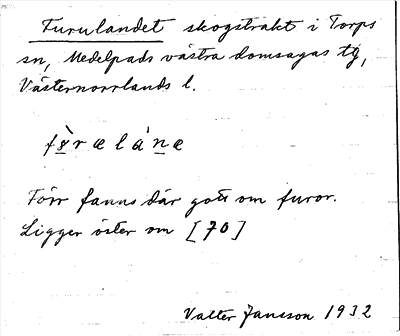 Furulandet skogstrakt i Torps
sn, Medelpads västra domsagas tg,
Västernorrlands l.
fù̱ræláṉæ
Förr fanns där gott om furor.
Ligger öster om [70]
Valter Jansson 1932